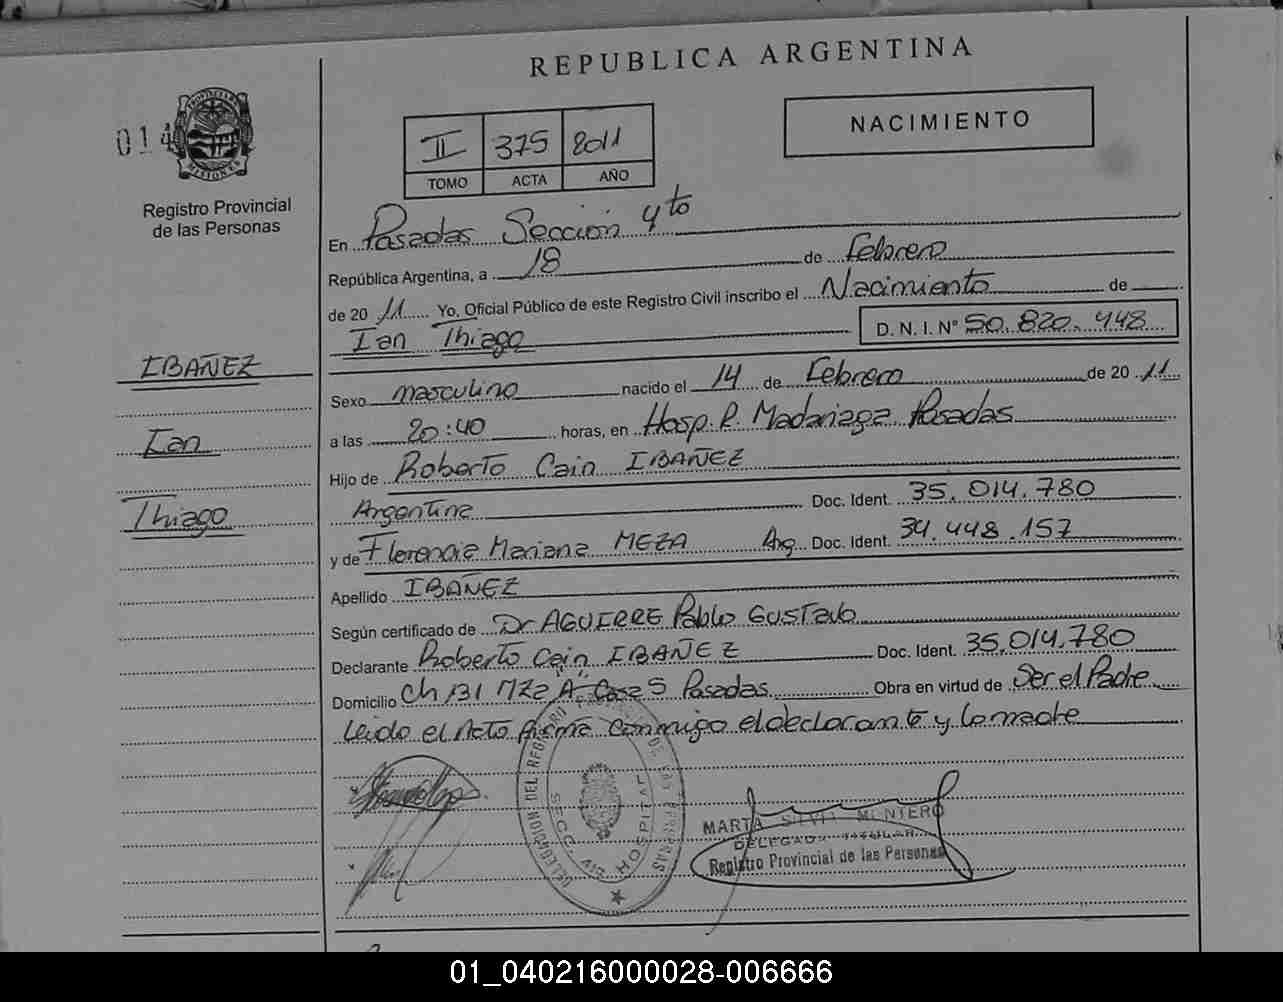 REPUBLICA ARGENTINA
NACIMIENTO
014
PROVINCIA DE MISIONES
Registro Provincial
de las Personas
II 375 2011
TOMO ACTA AÑO
En Posadas Sección 4to
República Argentina, a 18 de Febrero
de 2011 Yo, Oficial Público de este Registro Civil inscribo el Nacimiento de
Ian Thiago D. N. I. Nº 50.820.448
IBAÑEZ
Ian
Thiago
Sexo masculino nacido el 14 de Febrero de 2011
a las 20:40 horas, en Hosp. R. Madariaga Posadas
Hijo de Roberto Cain IBAÑEZ
Argentina Doc. Ident. 35.014.780
y de Florencia Mariana MEZA Arg. Doc. Ident. 34.448.157
Apellido IBAÑEZ
Según certificado de Dr AGUIRRE Pablo GUSTAVO
Declarante Roberto Cain IBAÑEZ Doc. Ident. 35.014.780
Domicilio Ch 131 MZa "A" Casa 5 Posadas Obra en virtud de Ser el Padre
Leido el Acto firma conmigo el declarante y la madre
HOSPITAL
MARTA MONTERO
DELEGADA TITULAR
Registro Provincial de las Personas
01_040216000028-006666